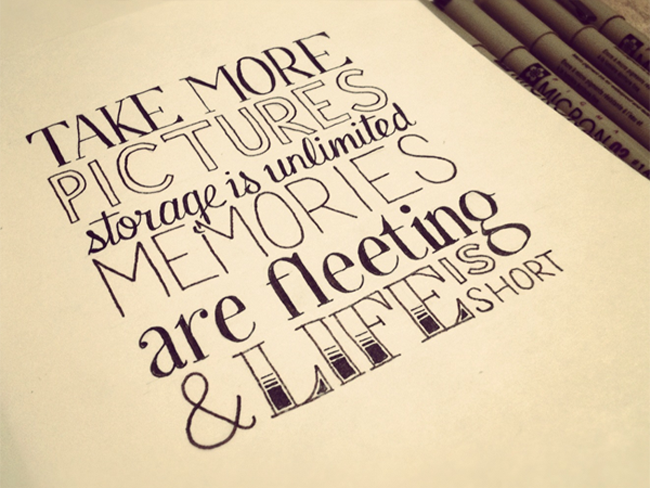 TAKE MORE
PICTURES
storage is unlimited
MEMORIES
are fleeting
& LIFE IS
SHORT
MICRON 02